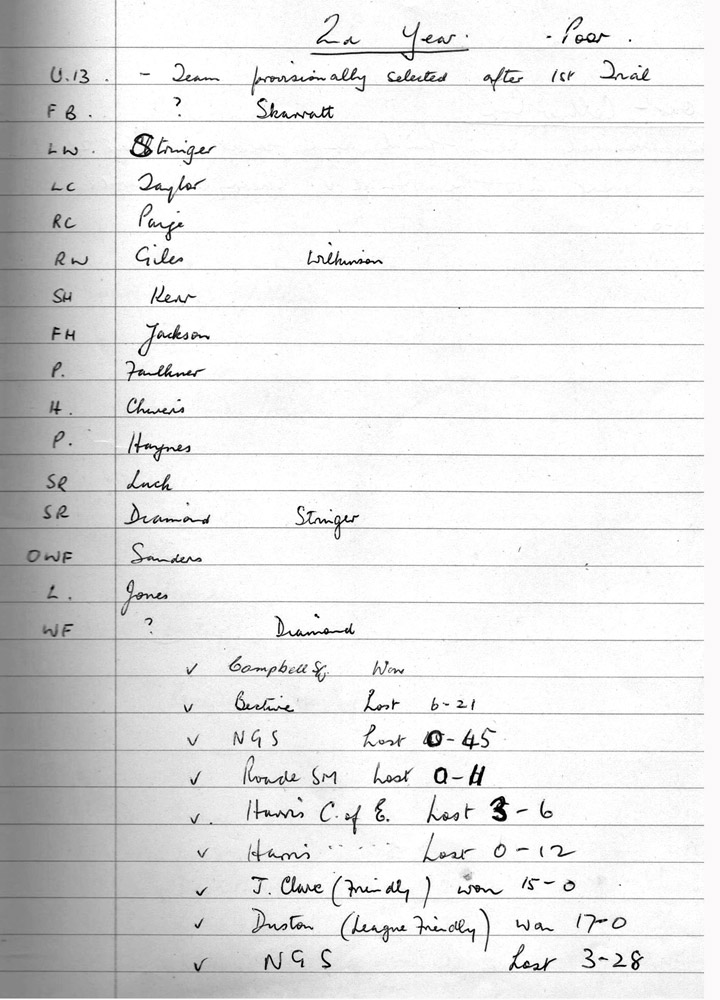 2nd Year. - Poor.
U.13. - Team provisionally selected after 1st Trial
F B. ? Skarratt
LW. Stringer
LC Taylor
RC Paige
RW Giles Wilkinson
SH Kerr
FH Jackson
P. Faulkner
H.
P. Haynes
SR Luck
SR Diamond Stringer
OWF Sanders
L. Jones
WF ? Diamond
✓ Campbell Sq. Won
✓ Bective Lost 6-21
✓ NGS Lost 0-45
✓ Roade SM Lost 0-11
✓. Harris C. of E. Lost 3-6
✓ Harris ..... Lost 0-12
✓ J. Clare (Friendly) won 15-0
✓ Duston (League Friendly) won 17-0
✓ NGS Lost 3-28